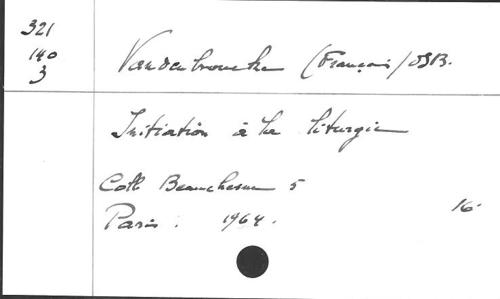 321
140
3
Vandenbroucke (François) OSB.
Initiation à la liturgie
Coll Beauchesne 5
Paris : 1964.
16°